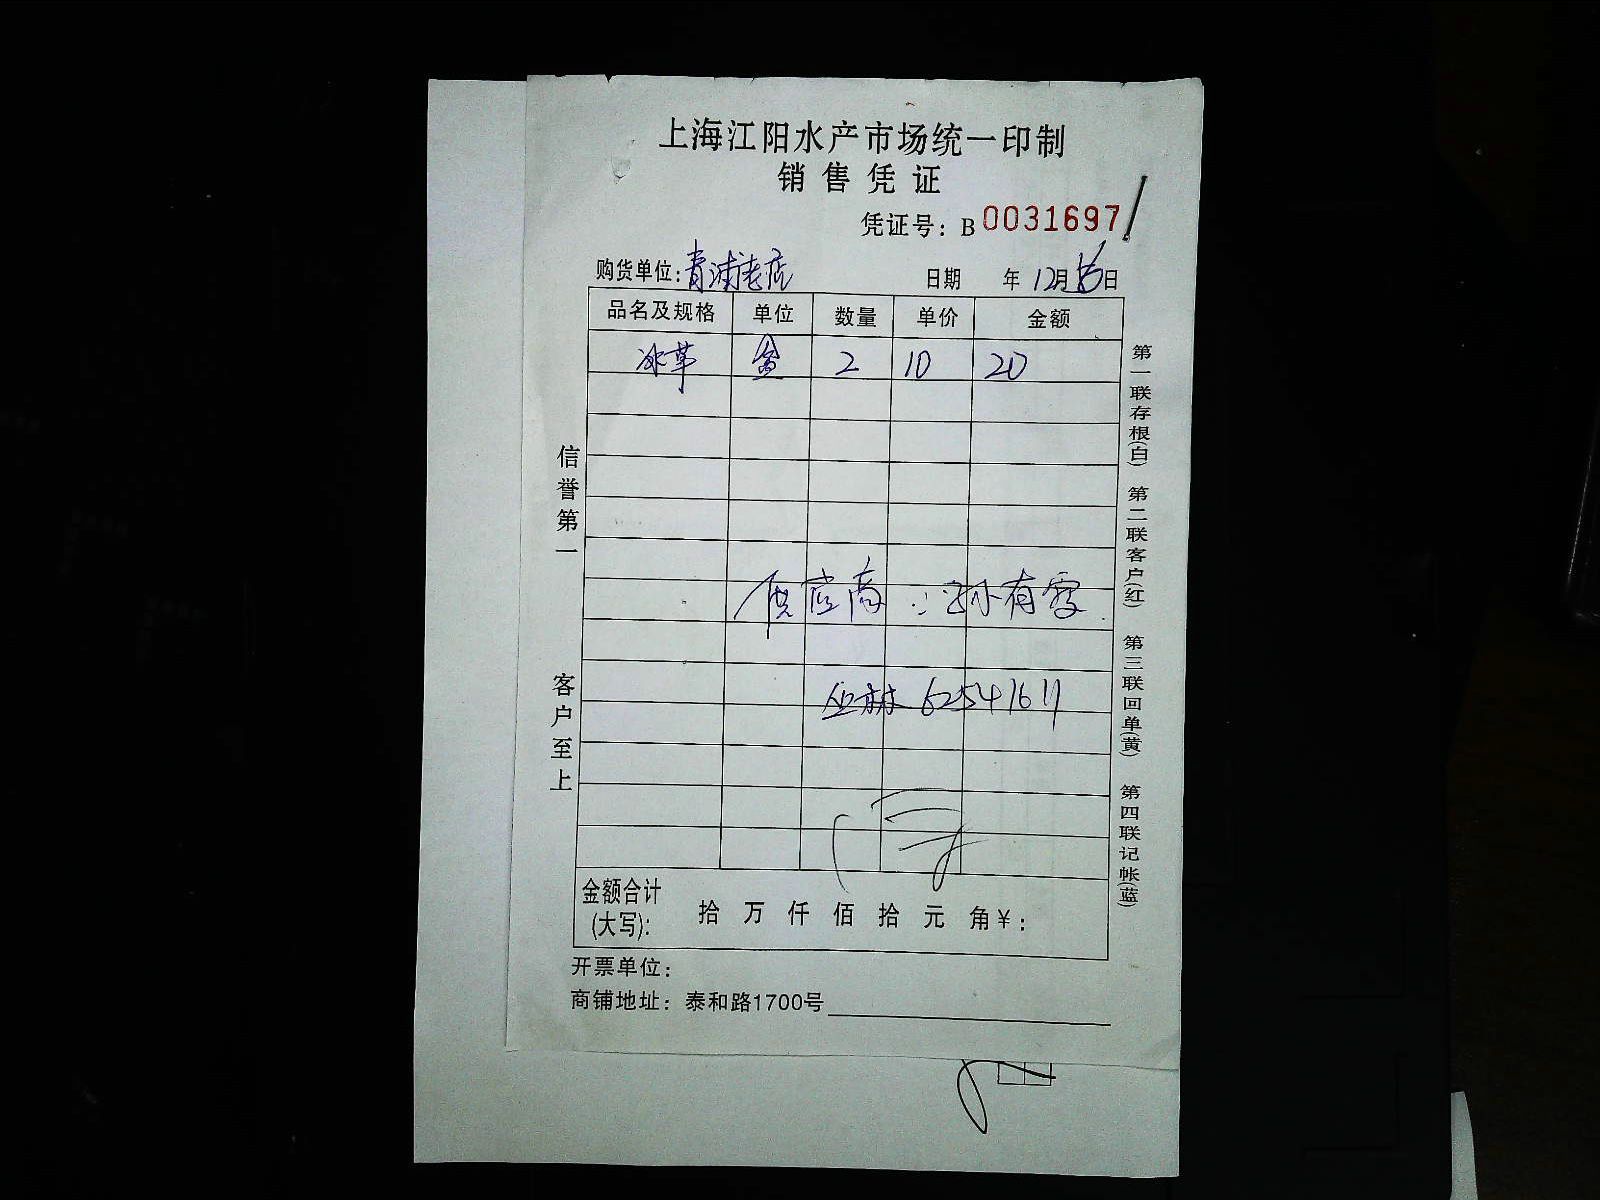 上海江阳水产市场统一印制
销售凭证
凭证号：B 0031697
购货单位：青浦老店 日期 年 12月 日
品名及规格 单位 数量 单价 金额
冰草 盒 2 10 20
供应商：孙有霞
丛林 62541611
金额合计
(大写)： 拾 万 仟 佰 拾 元 角 ¥：
开票单位：
商铺地址：泰和路1700号
信誉第一
客户至上
第一联存根(白) 第二联客户(红) 第三联回单(黄) 第四联记帐(蓝)